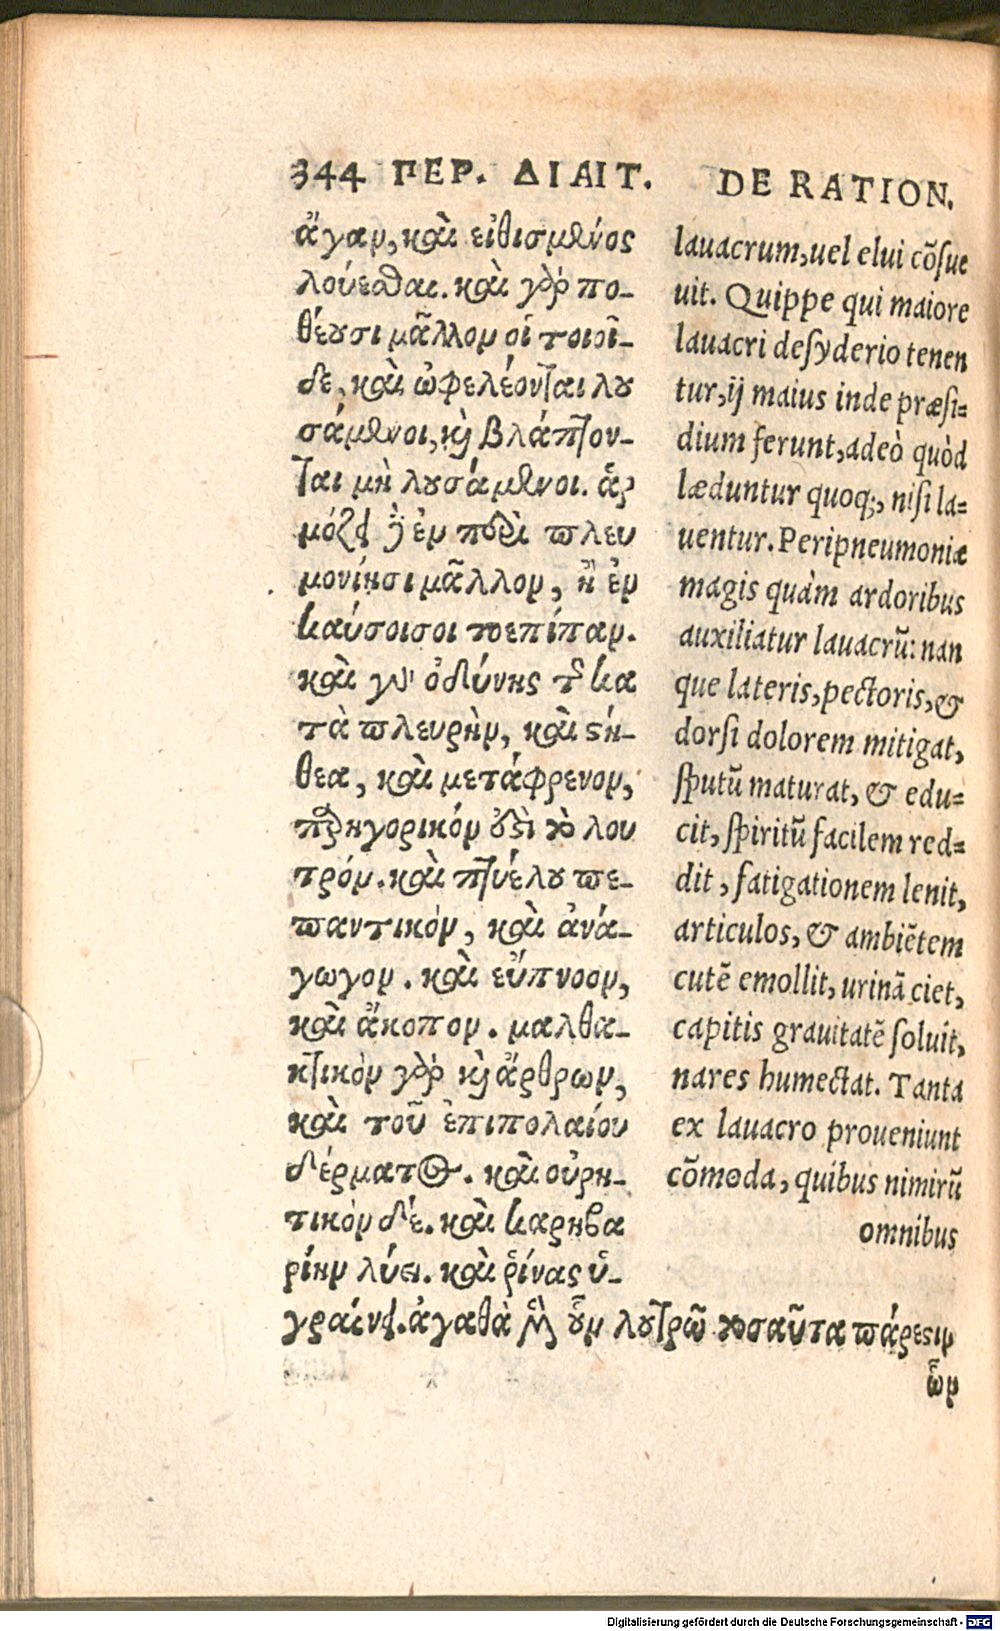 344 ΠΕΡ. ΔΙΑΙΤ.
ἄγαν, καὶ εἰθισμένος
λούεσθαι. καὶ γὰρ πο-
θέουσι μᾶλλον οἱ τοιοί-
δε, καὶ ὠφελέονται λου
σάμενοι, καὶ βλάπτον-
ται μὴ λουσάμενοι. ἁρ
μόζει δ' ἐν περὶ πλευ
μονίῃσι μᾶλλον, ἢ ἐν
καύσοισι τοεπίπαν.
καὶ γὰρ ὀδύνης τῆς κα
τὰ πλευρὴν, καὶ στή-
θεα, καὶ μετάφρενον,
παρηγορικόν ἐστὶ τὸ λου
τρόν. καὶ πτυέλου πε-
παντικὸν, καὶ ἀνά-
γωγον. καὶ εὔπνοον,
καὶ ἄκοπον. μαλθα-
κτικὸν γὰρ καὶ ἄρθρων,
καὶ τοῦ ἐπιπολαίου
δέρματος. καὶ οὐρη-
τικὸν δέ. καὶ καρηβα
ρίην λύει. καὶ ῥίνας ὑ-
γραίνει. ἀγαθὰ μὲν οὖν λουτρῷ τοσαῦτα πάρεστιν
ὧν
DE RATION.
lauacrum, uel elui cõsue
uit. Quippe qui maiore
lauacri desyderio tenen
tur, ij maius inde præsi-
dium ferunt, adeò quòd
læduntur quoq;, nisi la-
uentur. Peripneumoniæ
magis quàm ardoribus
auxiliatur lauacrũ: nan
que lateris, pectoris, &
dorsi dolorem mitigat,
sputũ maturat, & edu-
cit, spiritũ facilem red-
dit, fatigationem lenit,
articulos, & ambiẽtem
cutẽ emollit, urinã ciet,
capitis grauitatẽ soluit,
nares humectat. Tanta
ex lauacro proueniunt
cõmoda, quibus nimirũ
omnibus
Digitalisierung gefördert durch die Deutsche Forschungsgemeinschaft - DFG